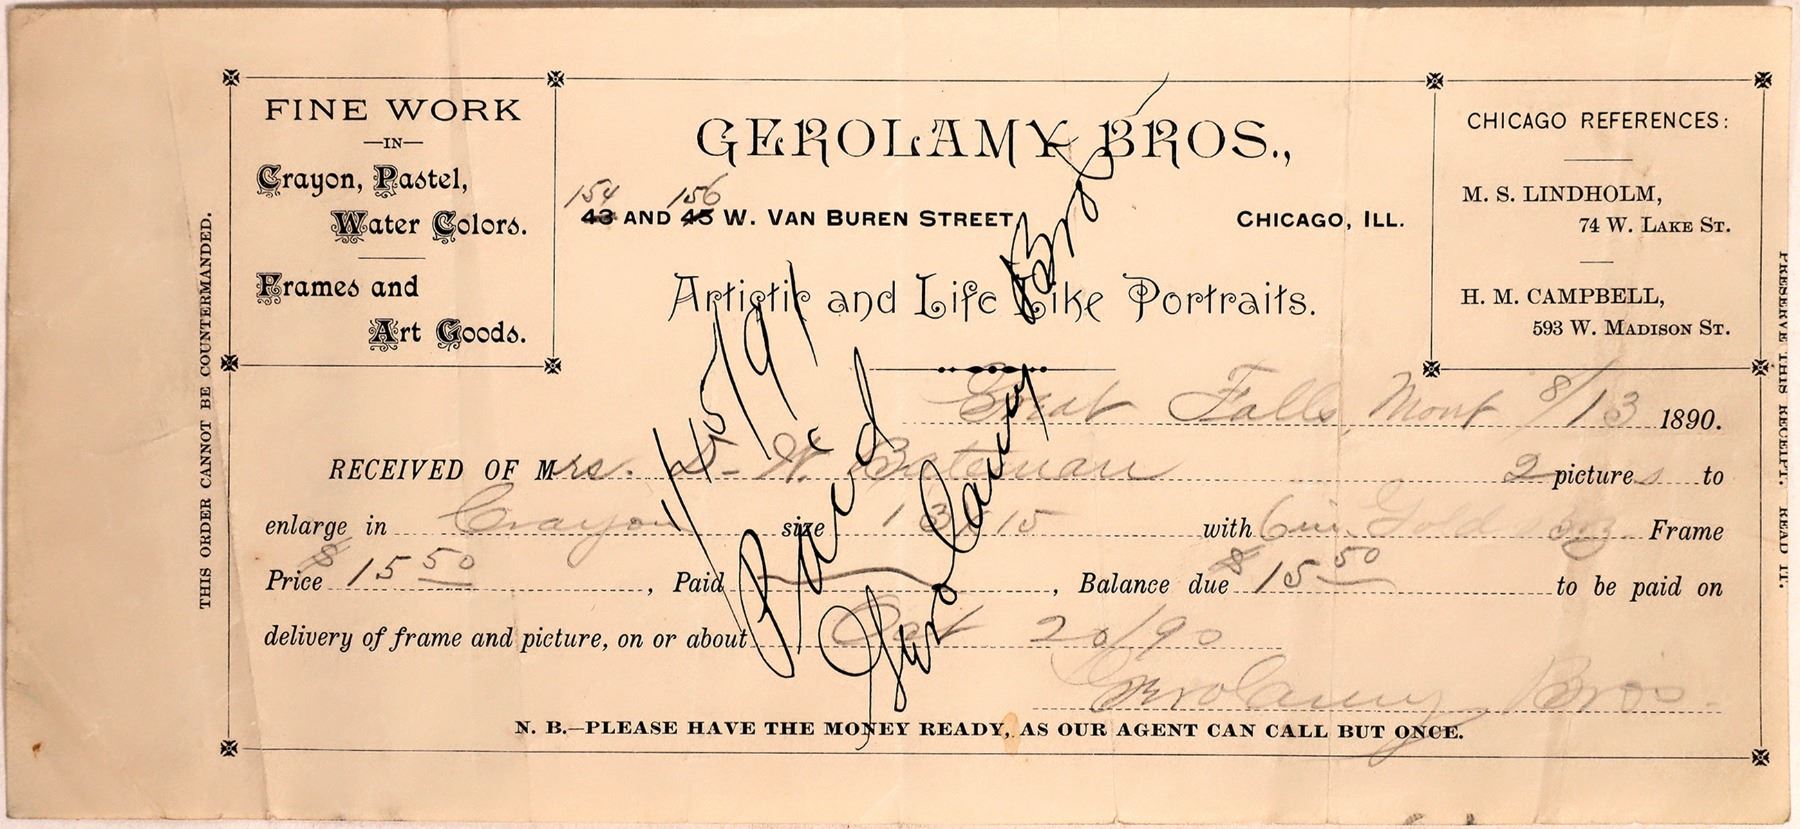 FINE WORK
—IN—
Crayon, Pastel,
Water Colors.
Frames and
Art Goods.
GEROLAMY BROS.,
154 156
43 AND 45 W. VAN BUREN STREET, CHICAGO, ILL.
Artistic and Life Like Portraits.
CHICAGO REFERENCES:
M. S. LINDHOLM,
74 W. LAKE ST.
H. M. CAMPBELL,
593 W. MADISON ST.
Great Falls, Mont 8/13 1890.
RECEIVED OF Mrs. D. W. Bateman 2 pictures to
enlarge in Crayon size 13 x 15 with 6 in. Gold Frame
Price $15 50, Paid, Balance due $15 50 to be paid on
delivery of frame and picture, on or about Oct 20/90
Gerolamy Bros.
N. B.—PLEASE HAVE THE MONEY READY, AS OUR AGENT CAN CALL BUT ONCE.
THIS ORDER CANNOT BE COUNTERMANDED.
PRESERVE THIS RECEIPT. READ IT.
Paid
Gerolamy Bros